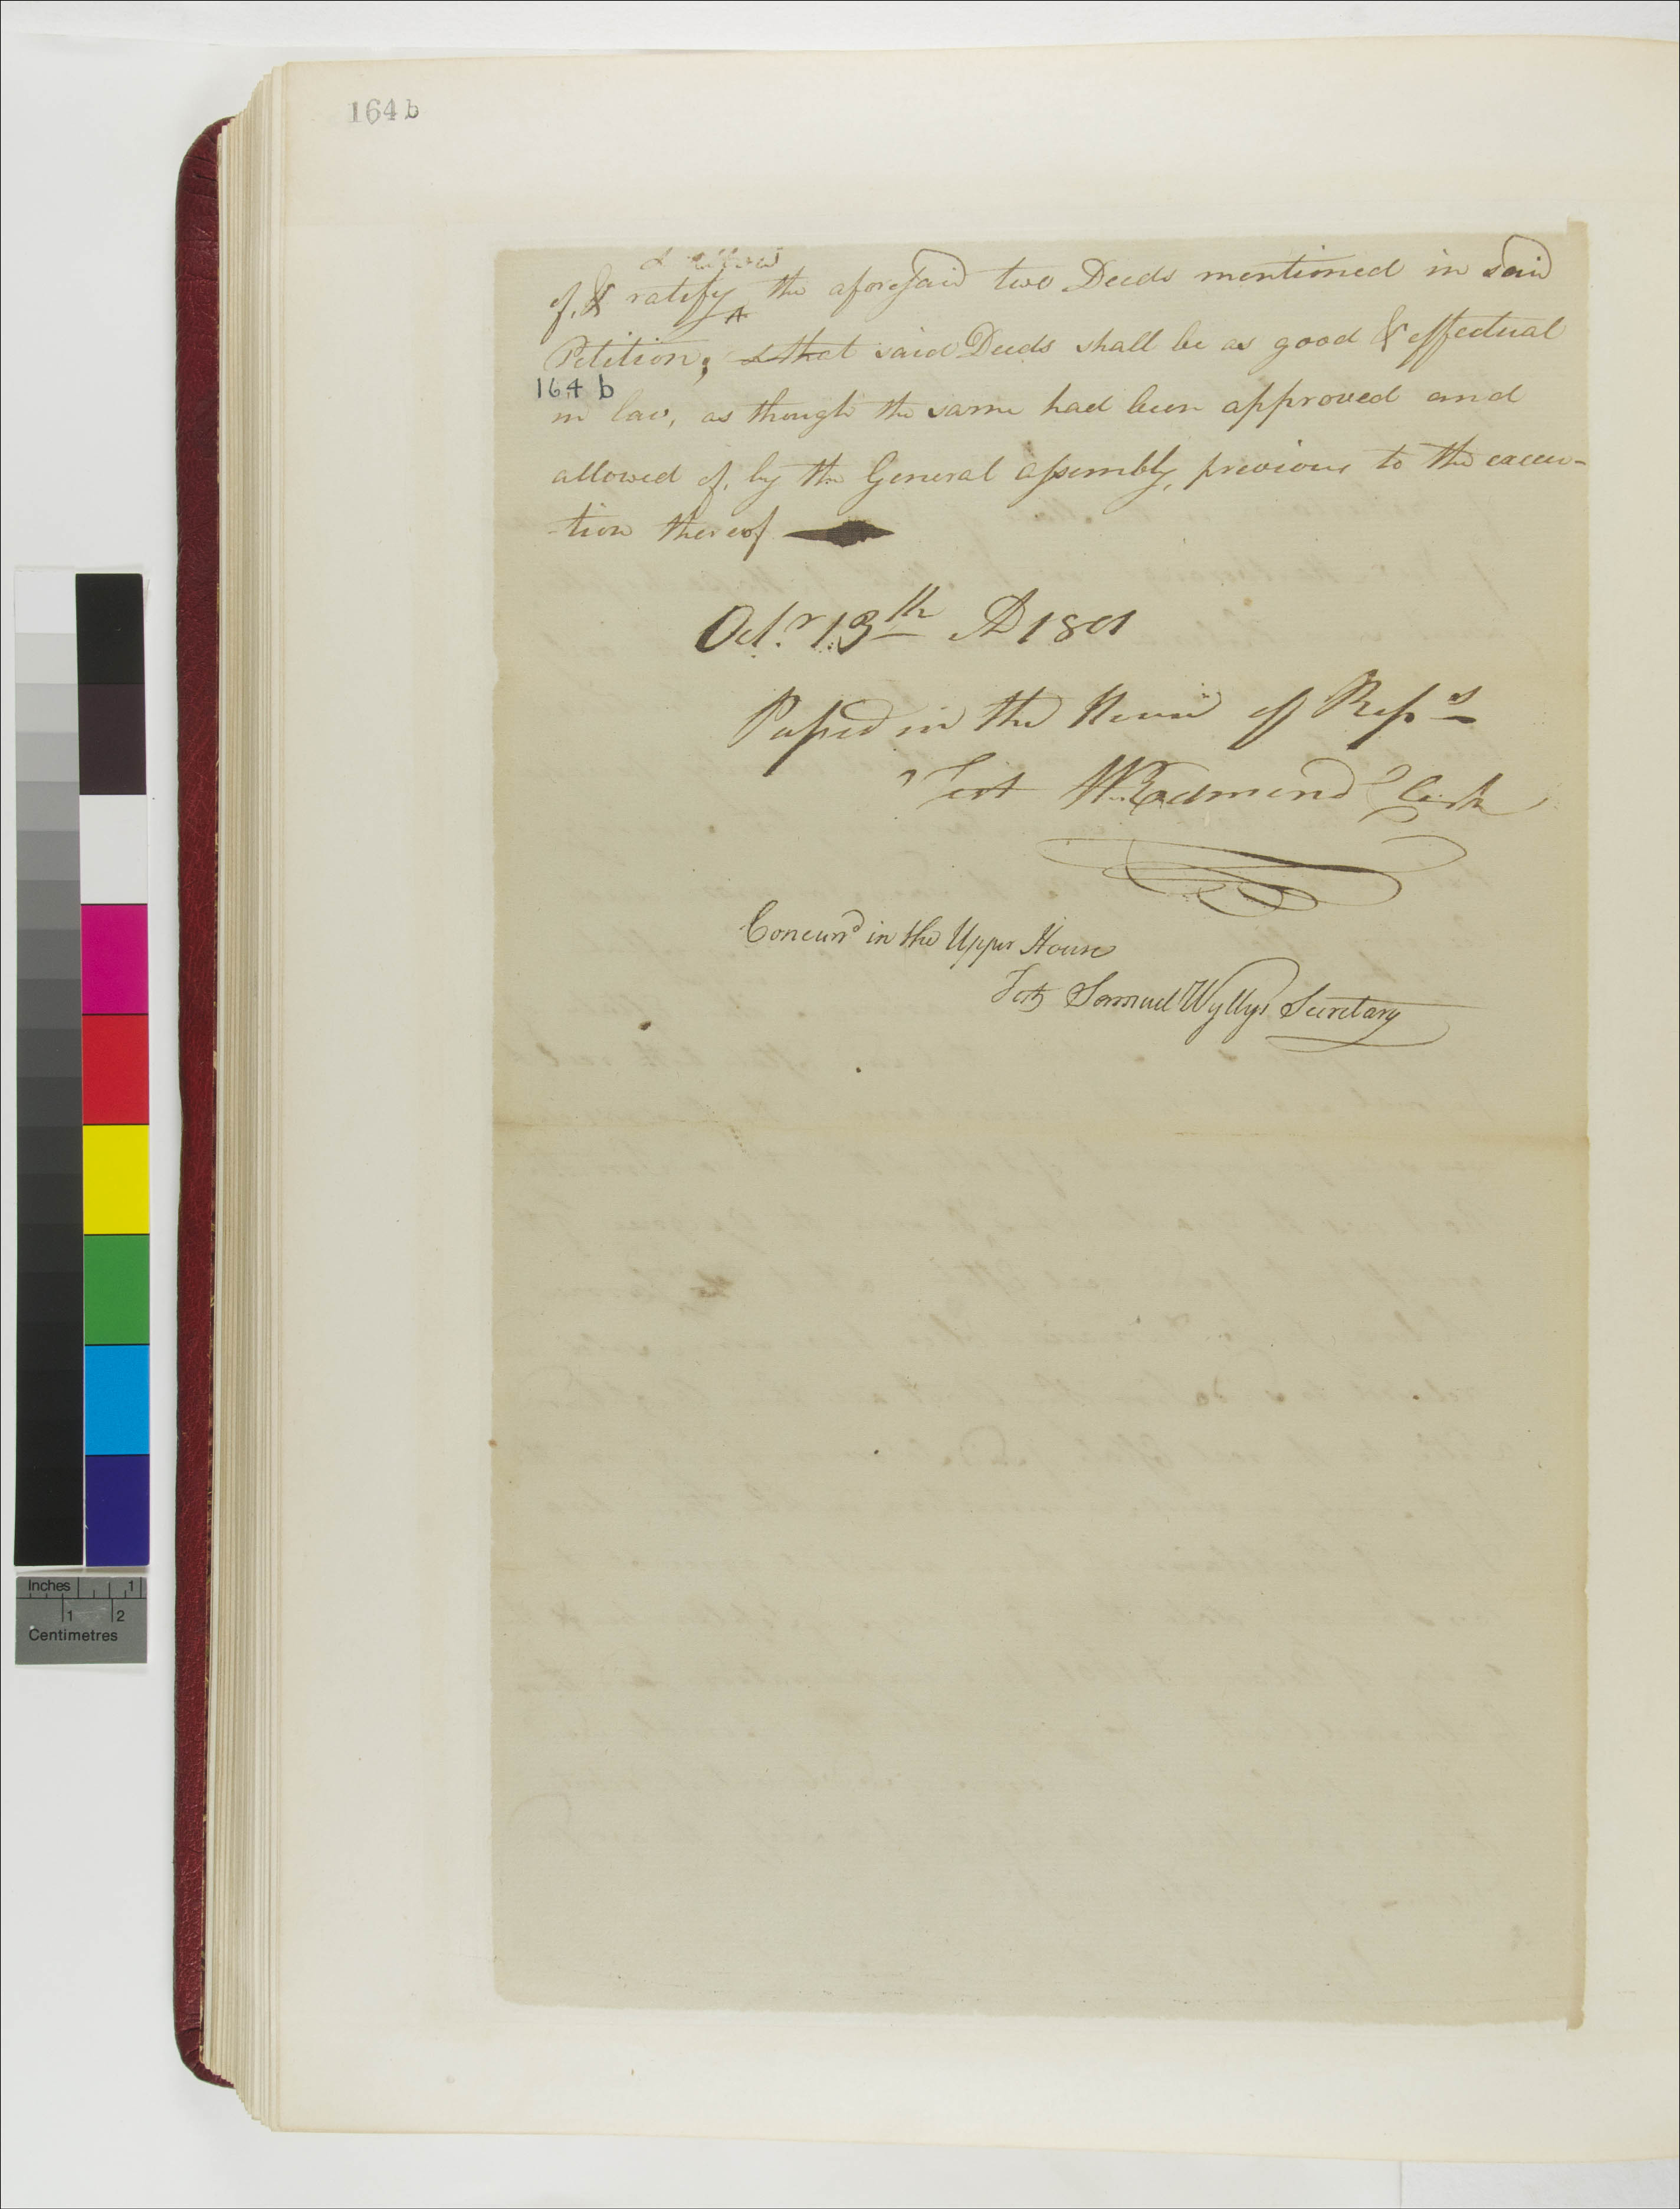 164 b
& allow
of, & ratify ^ the aforesaid two Deeds mentioned in said
Petition; & that said Deeds shall be as good & effectual
164 b
in law, as though the same had been approved and
allowed of, by the General assembly, previous to the execu-
-tion thereof
Octr. 13th AD 1801
Passed in the House of Reps
Test W Edmond Clerk
Concurd in the Upper House
Test Samuel Wyllys Secretary
Inches 1
1 2
Centimetres